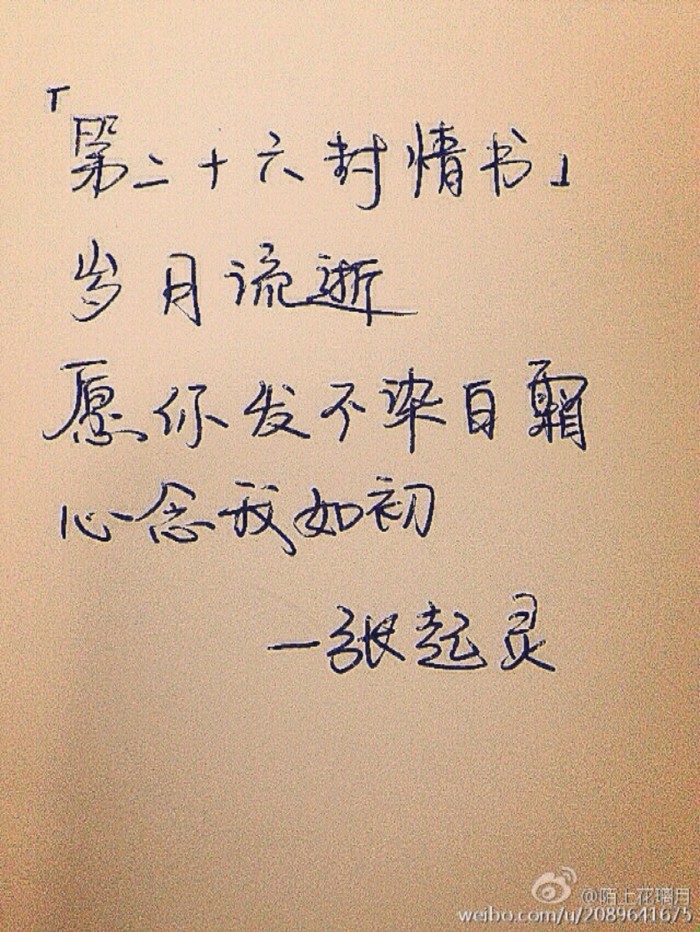 「第二十六封情书」
岁月流逝
愿你发不染白霜
心念我如初
一张起灵
@陌上花璃月
weibo.com/u/2089641675